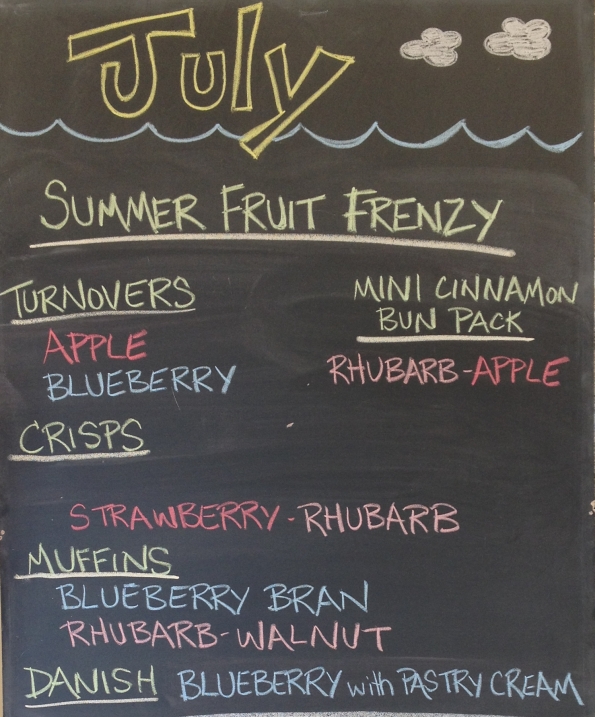 July
SUMMER FRUIT FRENZY
TURNOVERS
APPLE
BLUEBERRY
MINI CINNAMON
BUN PACK
RHUBARB-APPLE
CRISPS
STRAWBERRY-RHUBARB
MUFFINS
BLUEBERRY BRAN
RHUBARB-WALNUT
DANISH BLUEBERRY with PASTRY CREAM